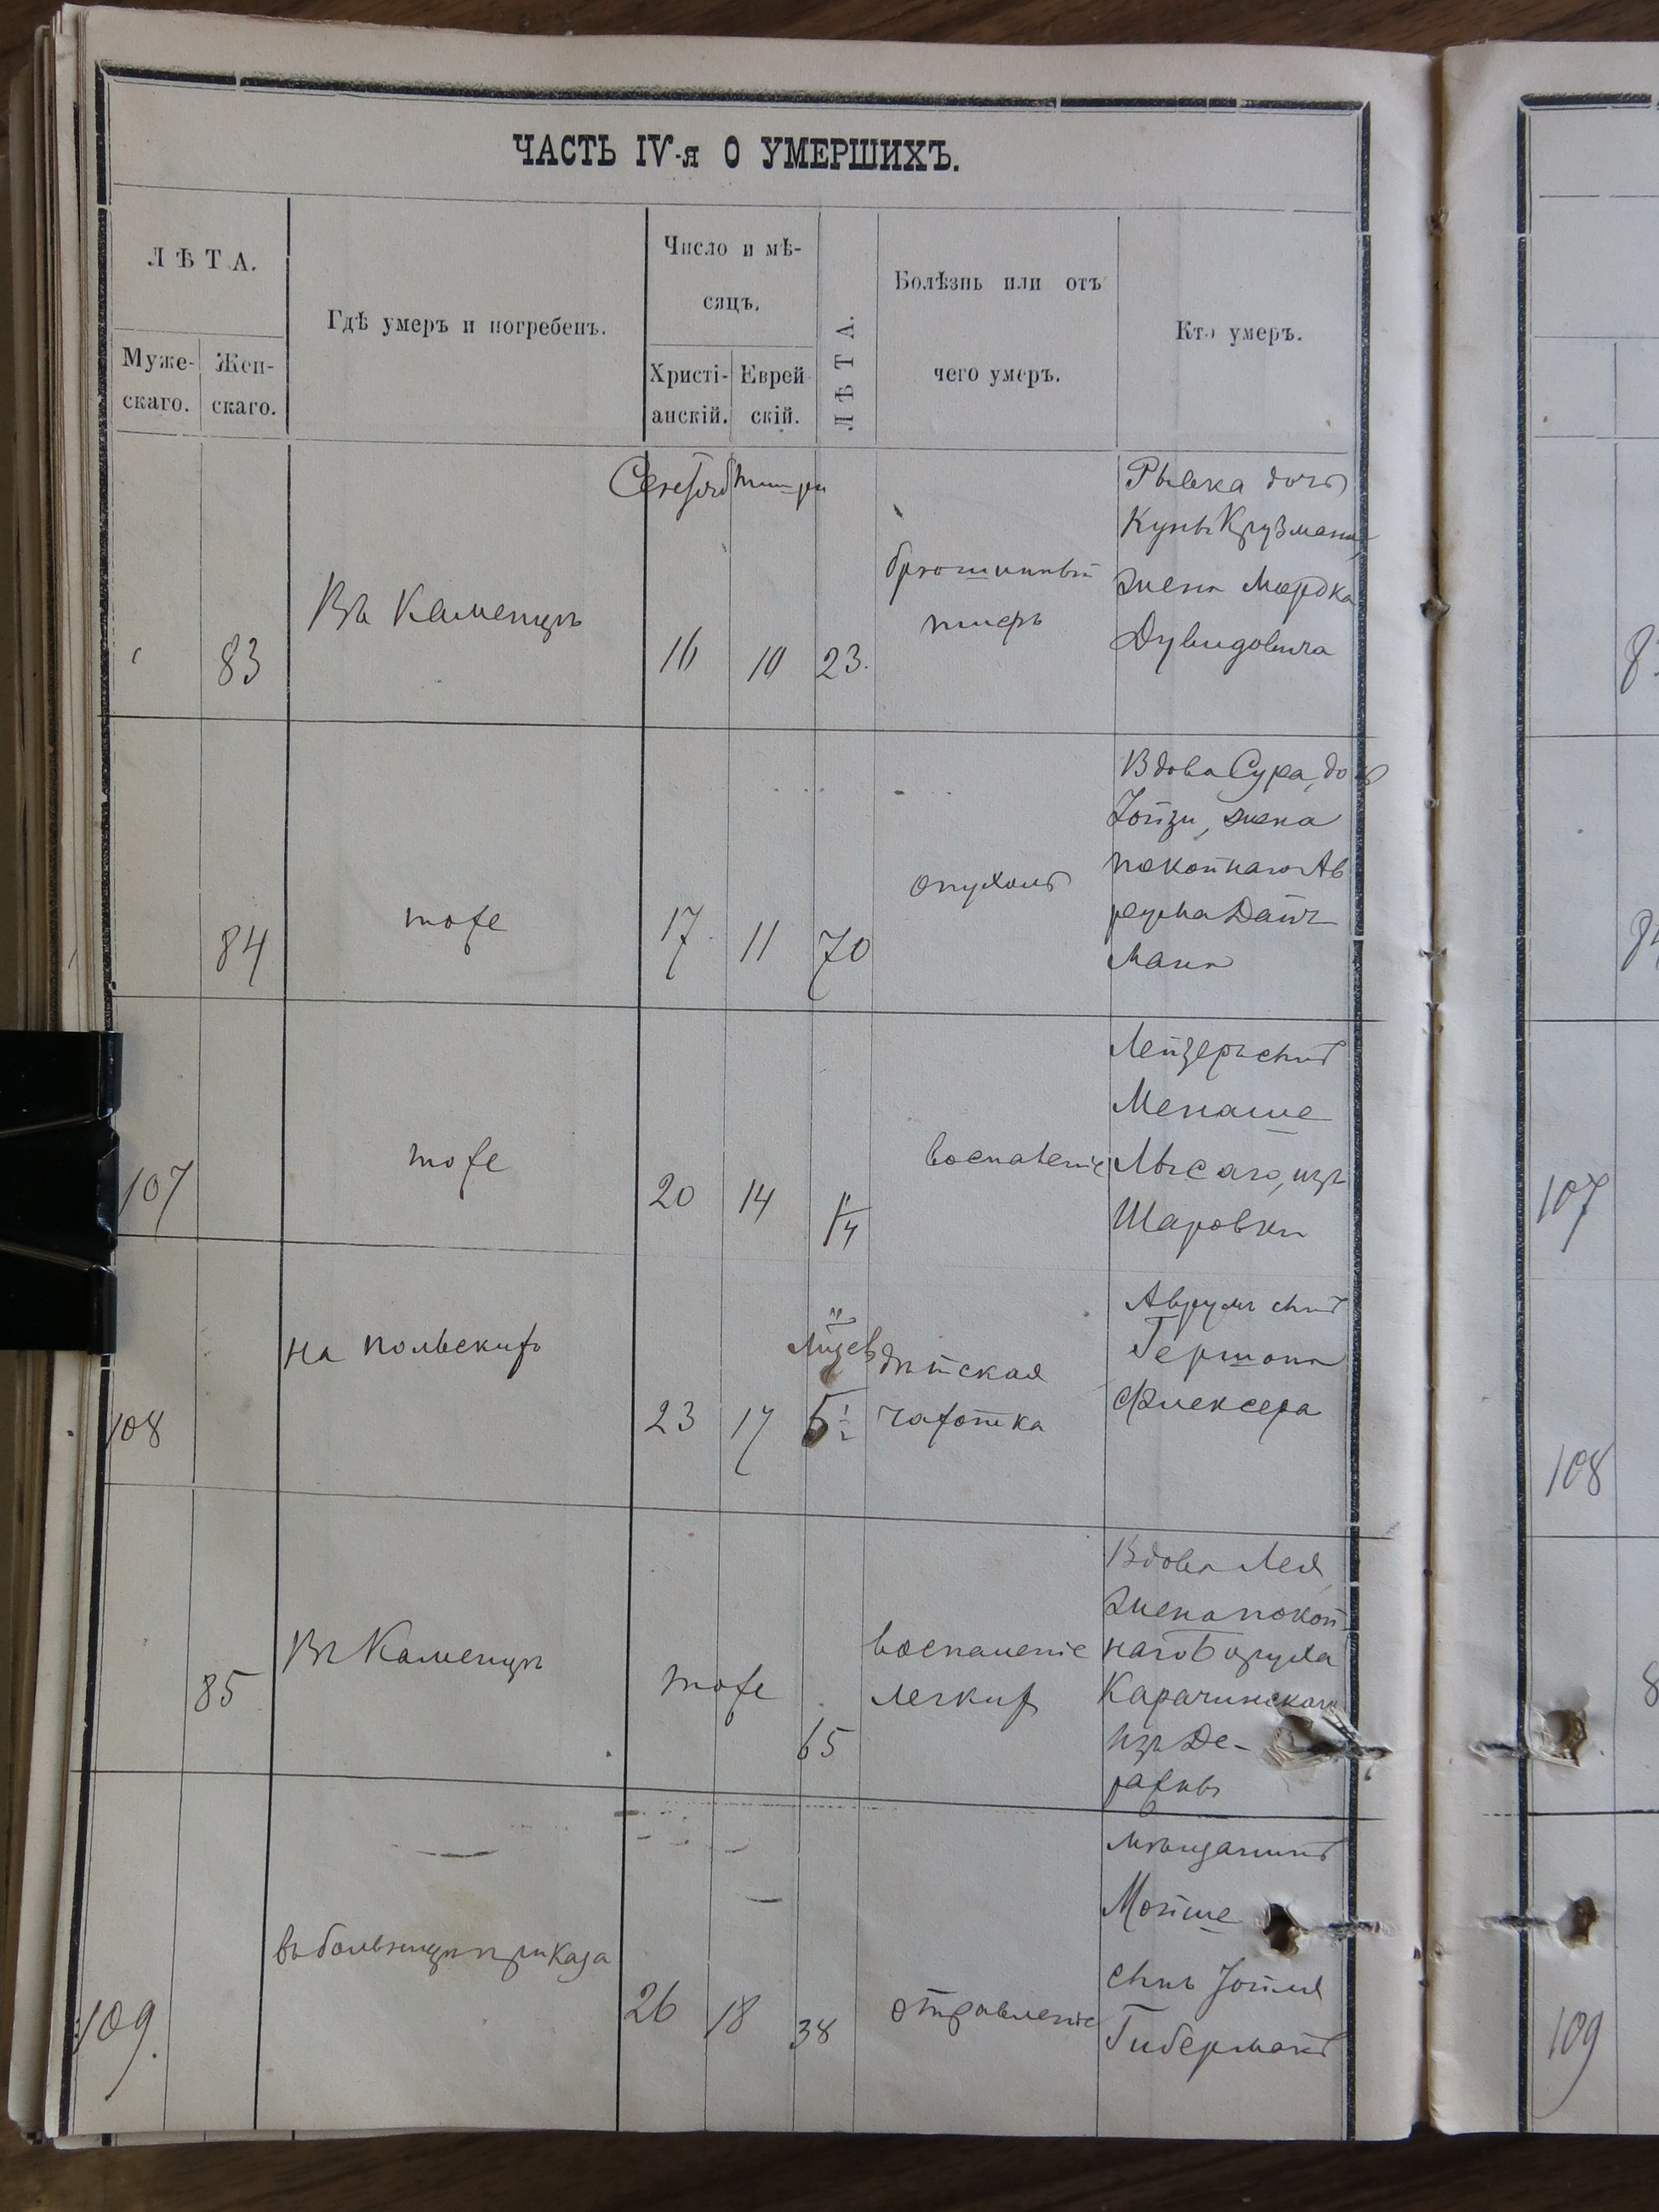 ЧАСТЬ IV-я О УМЕРШИХЪ.
ЛѢТА.
Муже-
скаго.
Жен-
скаго.
Гдѣ умеръ и погребенъ.
Число и мѣ-
сяцъ.
Христі-
анскій.
Еврей
скій.
ЛѢТА.
Болѣзнь или отъ
чего умеръ.
Кто умеръ.
83
Въ Каменцѣ
16
10
23.
брюшинный
тифъ
Рывка дочь
Куны Крузмана,
жена Мордка
Дувидовича
84
тоже
17
11
70
опухоль
Вдова Сура, дочь
Іойзи, жена
покойнаго Ав
рума Дайч
мана
107
тоже
20
14
1/4
воспаленіе
Лейзеръ сынъ
Менаше
Лысаго, изъ
Шаровки
108
на польскихъ
23
17
5
дѣтская
чахотка
Аврумъ сынъ
Гершона
Флексера
85
Въ Каменцѣ
тоже
65
воспаленіе
легкихъ
Вдова Лея,
жена покой-
наго Боруха
Карачинскаго
изъ Де-
ражны
109.
въ больницѣ приказа
26
18
38
отравленіе
мѣщанинъ
Мойше
сынъ Іойля
Гиберманъ
107
108
109